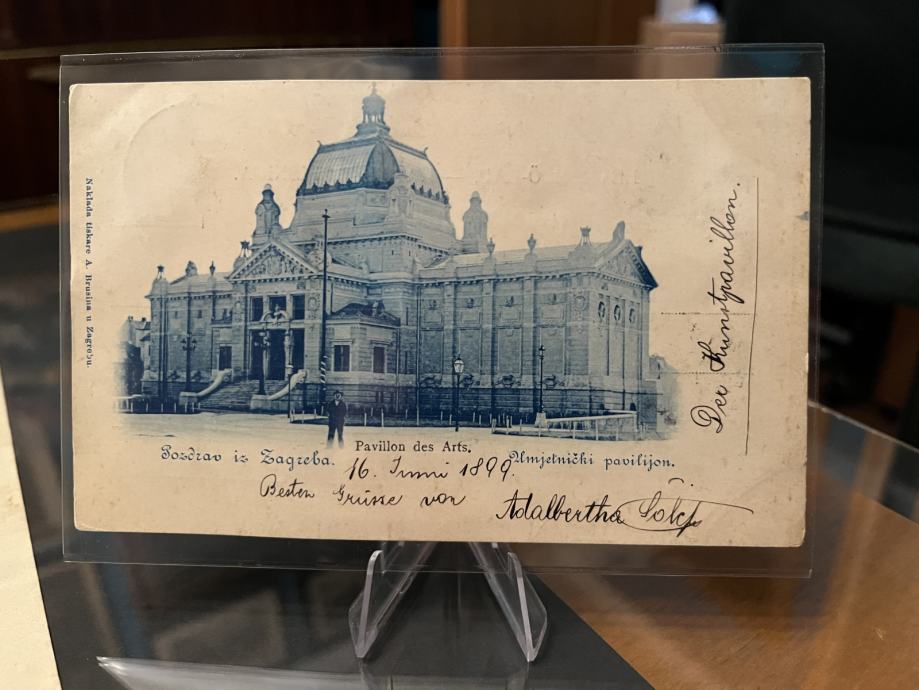 Naklada tiskare A. Brusina u Zagrebu.
Pozdrav iz Zagreba.
Pavillon des Arts.
Umjetnički pavilijon.
16. Juni 1899.
Besten Grüsse von
Adalbertha
Der Kunstpavillon.